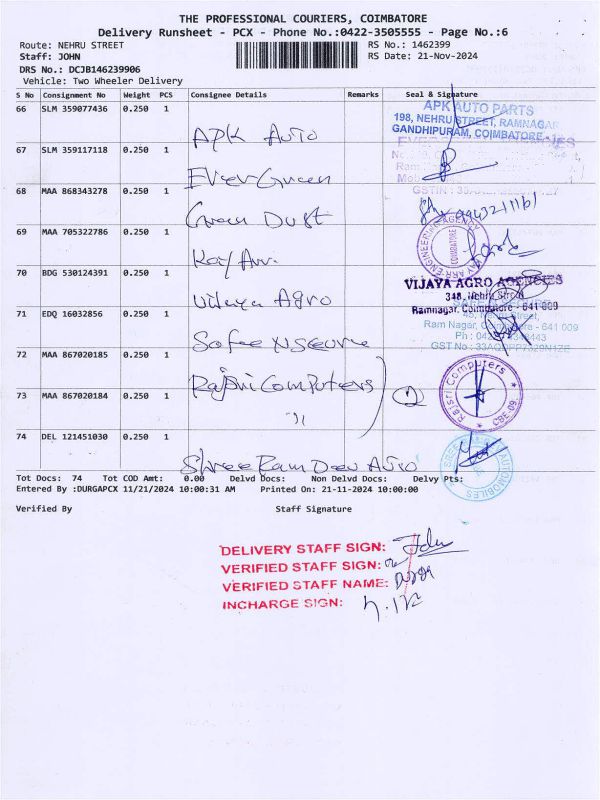 THE PROFESSIONAL COURIERS, COIMBATORE
Delivery Runsheet - PCX - Phone No.:0422-3505555 - Page No.:6
Route: NEHRU STREET RS No.: 1462399
Staff: JOHN RS Date: 21-Nov-2024
DRS No.: DCJB146239906
Vehicle: Two Wheeler Delivery
S No Consignment No Weight PCS Consignee Details Remarks Seal & Signature
66 SLM 359077436 0.250 1 APK Auto
APK AUTO PARTS
198, NEHRU STREET, RAMNAGAR
GANDHIPURAM, COIMBATORE
67 SLM 359117118 0.250 1 EverGreen
68 MAA 868343278 0.250 1 Green Dust
69 MAA 705322786 0.250 1 Kay Arr
ENGINEERING AGENCY
COIMBATORE
70 BDG 530124391 0.250 1 Vijaya Agro
VIJAYA AGRO AGENCIES
348, Nehru Street
Ramnagar, Coimbatore - 641 009
71 EDQ 16032856 0.250 1 Safee
Ram Nagar, Coimbatore - 641 009
72 MAA 867020185 0.250 1 Rajsri Computers
73 MAA 867020184 0.250 1 "
2
Rajsri Computers
CBE-09
74 DEL 121451030 0.250 1 Shree Ram Dev Auto
AUTOMOBILES
Tot Docs: 74 Tot COD Amt: 0.00 Delvd Docs: Non Delvd Docs: Delvy Pts:
Entered By :DURGAPCX 11/21/2024 10:00:31 AM Printed On: 21-11-2024 10:00:00
Verified By Staff Signature
DELIVERY STAFF SIGN:
VERIFIED STAFF SIGN:
VERIFIED STAFF NAME:
INCHARGE SIGN: